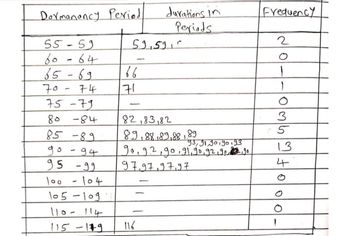 Dormanancy Period durations in Periods Frequency
55 - 59 59, 59, 2
60 - 64 — 0
65 - 69 66 1
70 - 74 71 1
75 - 79 — 0
80 - 84 82, 83, 82 3
85 - 89 89, 88, 89, 88, 89 5
93, 91, 90, 90, 93
90 - 94 90, 92, 90, 91, 90, 92, 90, 90 13
95 - 99 97, 97, 97, 97 4
100 - 104 — 0
105 - 109 — 0
110 - 114 — 0
115 - 119 116 1